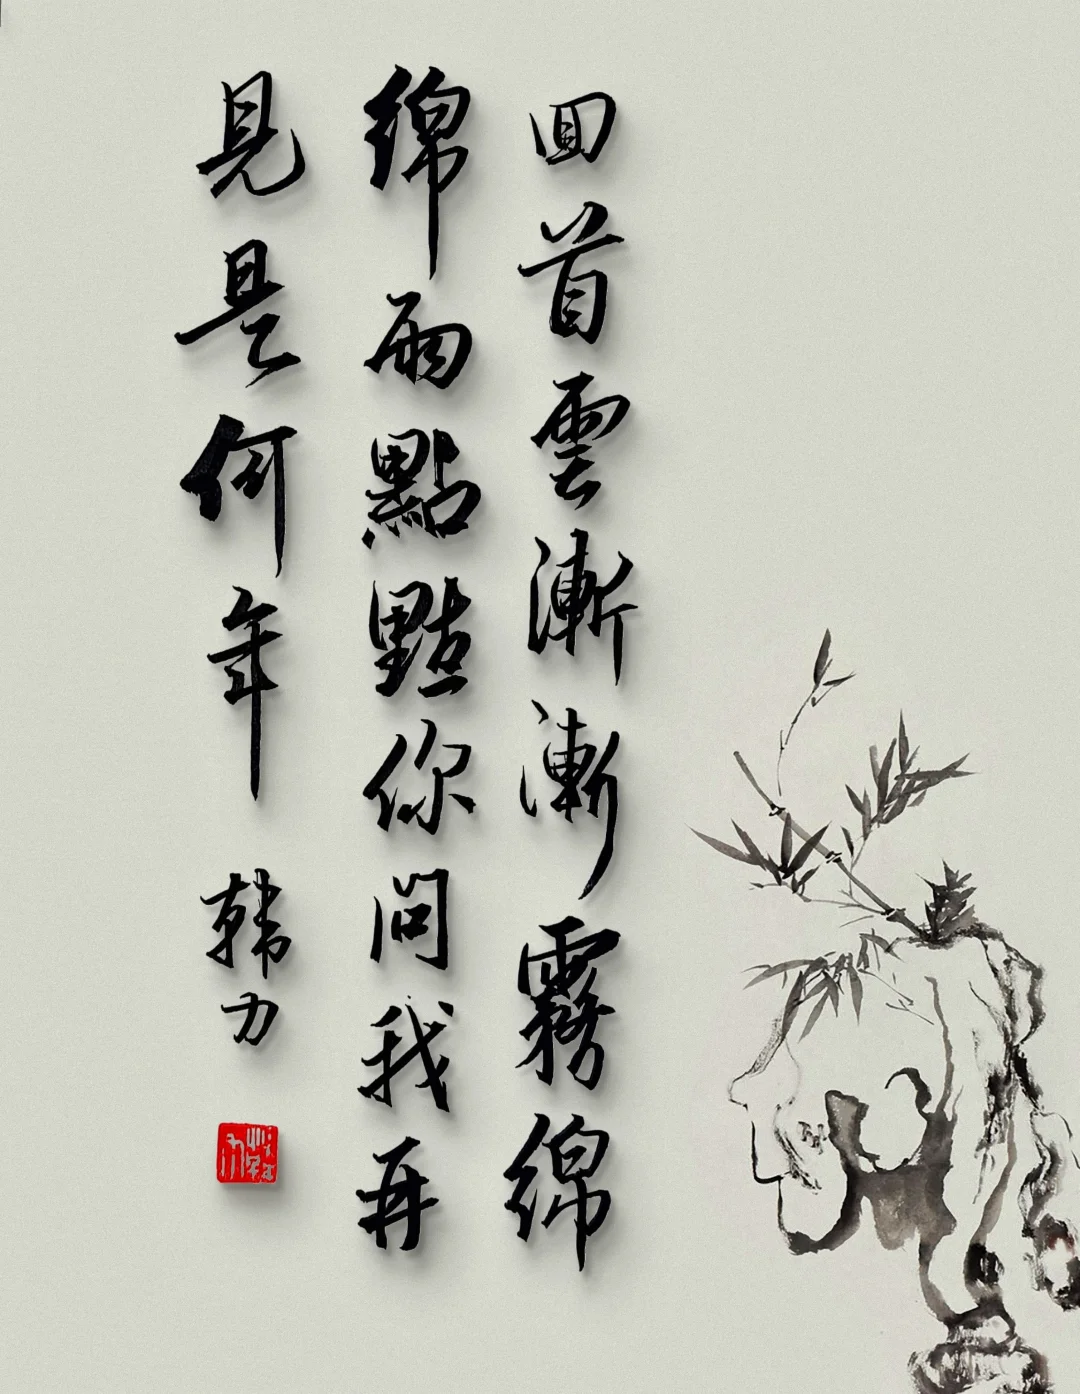 回首雲漸漸霧綿
綿雨點點你问我再
見是何年
韓力